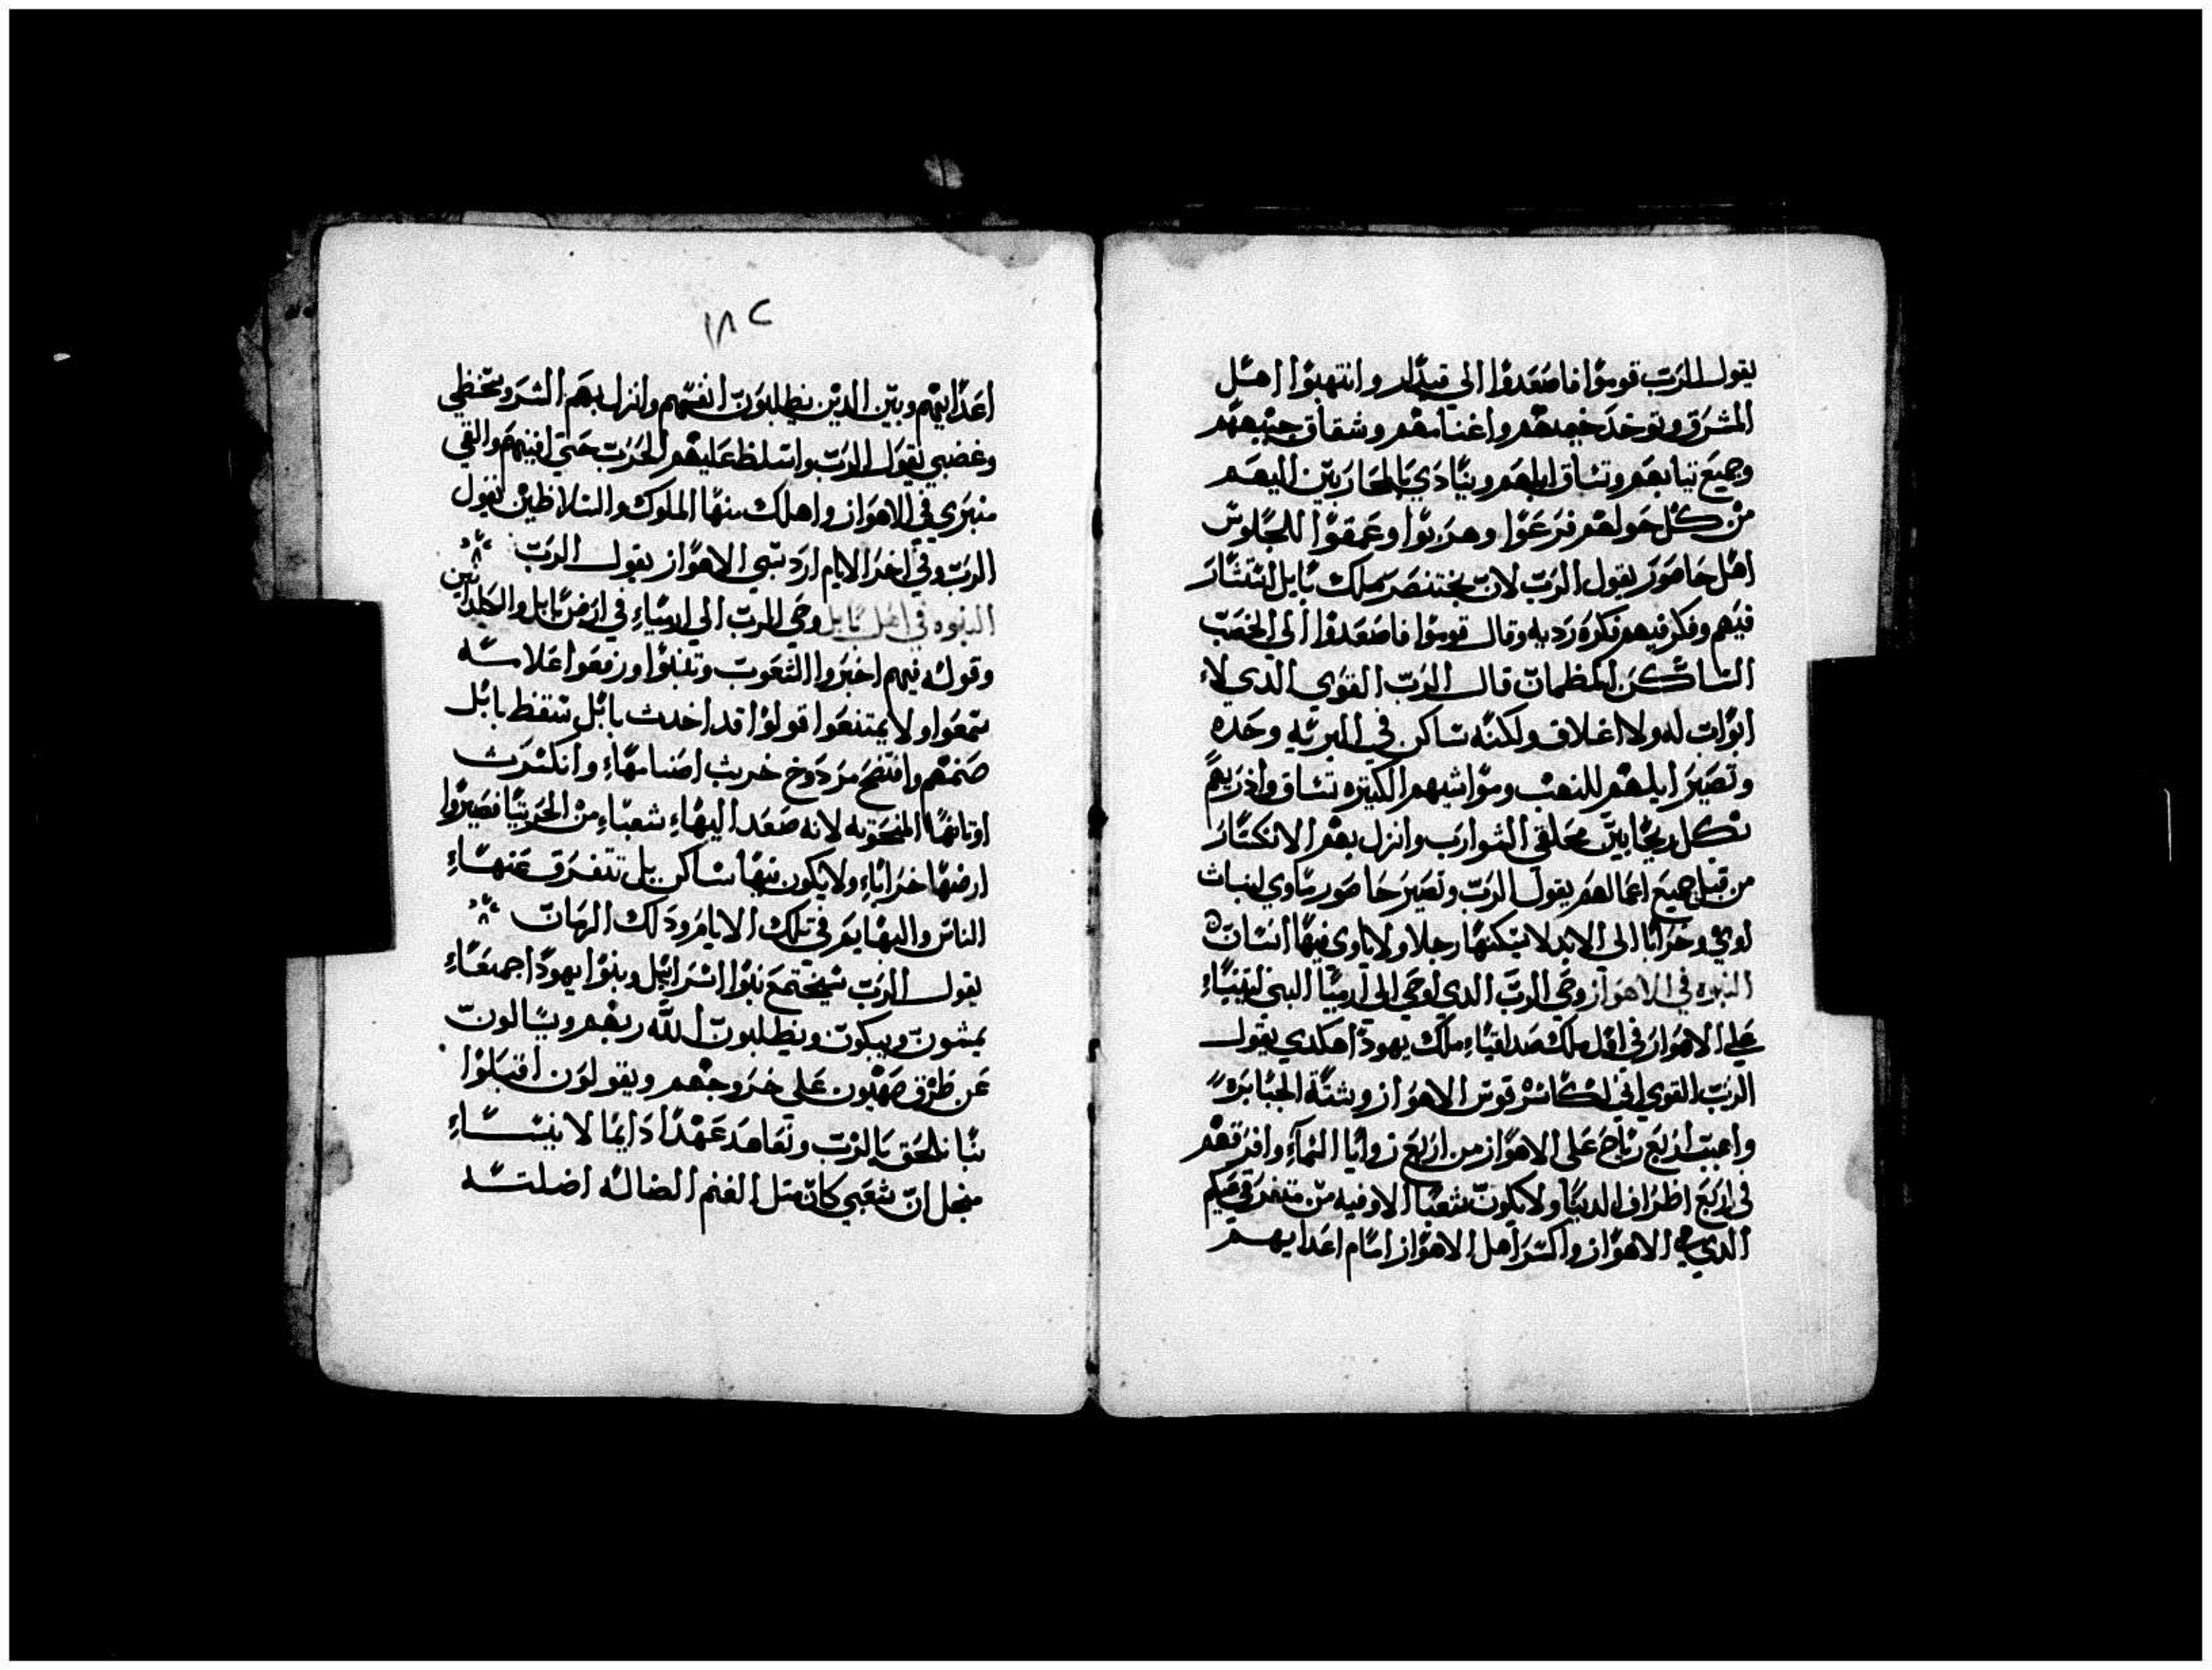 يقول الرب قوموا فاصعدوا الي قيدار وانتهبوا اهل
المشرق وتوخد خيمهم واغنامهم وشقاق خيمهم
وجميع تيابهم وتساق ابلهم وينادي بالمحاربين اليهم
من كل حولهم فزعوا وهربوا وعمقوا للجلوس
اهل حاصور يقول الرب لان بختنصر ملك بابل استشار
فيهم وفكر فيهم فكره رديه وقال قوموا فاصعدوا الي الخصب
الساكن المطمان قال الرب القوي الدي لا
ابواب له ولا اغلاق ولكنه ساكن في البريه وحده
وتصير ابلهم للنهب ومواشيهم الكتيره تساق واذريهم
لكل ريح بين محلقي الشوارب وانزل بهم الانكسار
من قبل جميع اعمالهم يقول الرب وتصير حاصور ماوي لبنات
اوي وخرابا الي الابد لا يسكنها رجلا ولا ياوي فيها انسان
النبوه في الاهواز وحي الرب الدي اوحي الي ارميا النبي ليتنبا
علي الاهواز في اول ملك صداقيا ملك يهودا هكدي يقول
الرب القوي اني لكاسر قوس الاهواز وشدة الجبابره
واهيب اربع رياح علي الاهواز من اربع زوايا السماء وافرقهم
في اربع اطراف الدنيا ولا يكون شعبا الا وفيه من متفرقيكم
الدي الاهواز واكسر اهل الاهواز امام اعدايهم
١٨٢
اعدايهم وبين الدين يطلبون انفسهم وانزل بهم الشر وسخطي
وغضبي يقول الرب واسلط عليهم الحرب حتي افنيهم والقي
منبري في الاهواز واهلك منها الملوك والسلاطين يقول
الرب وفي اخر الايام ارد سبي الاهواز يقول الرب
النبوه في اهل بابل وحي الرب الي ارمياء في ارض بابل والكلدانين
وقوله فيهم اخبروا الشعوب وتنبوا وارفعوا علامه
سمعوا ولا يمتنعوا قولوا قد اخدت بابل سقط بابل
صنمهم وافتضح مردوخ خربت اصنامهاء وانكسرت
اوتانها المنحوته لانه صعد اليهاء شعباء من الجربيا فصيروا
ارضها خراباء ولا يكون فيها ساكن بل تتفرق عنهاء
الناس والبهايم في تلك الايام ودلك الزمان
يقول الرب سيجتمع بنوا اسرايل وبنوا يهودا جميعاء
يمشون ويبكون ويطلبون الله ربهم ويسالون
عن طرق صهيون علي خروجهم ويقولون اقبلوا
بنا نلحق بالرب ونعاهد عهدا دايما لا ينساء
من اجل ان شعبي كان متل الغنم الضاله اضلته